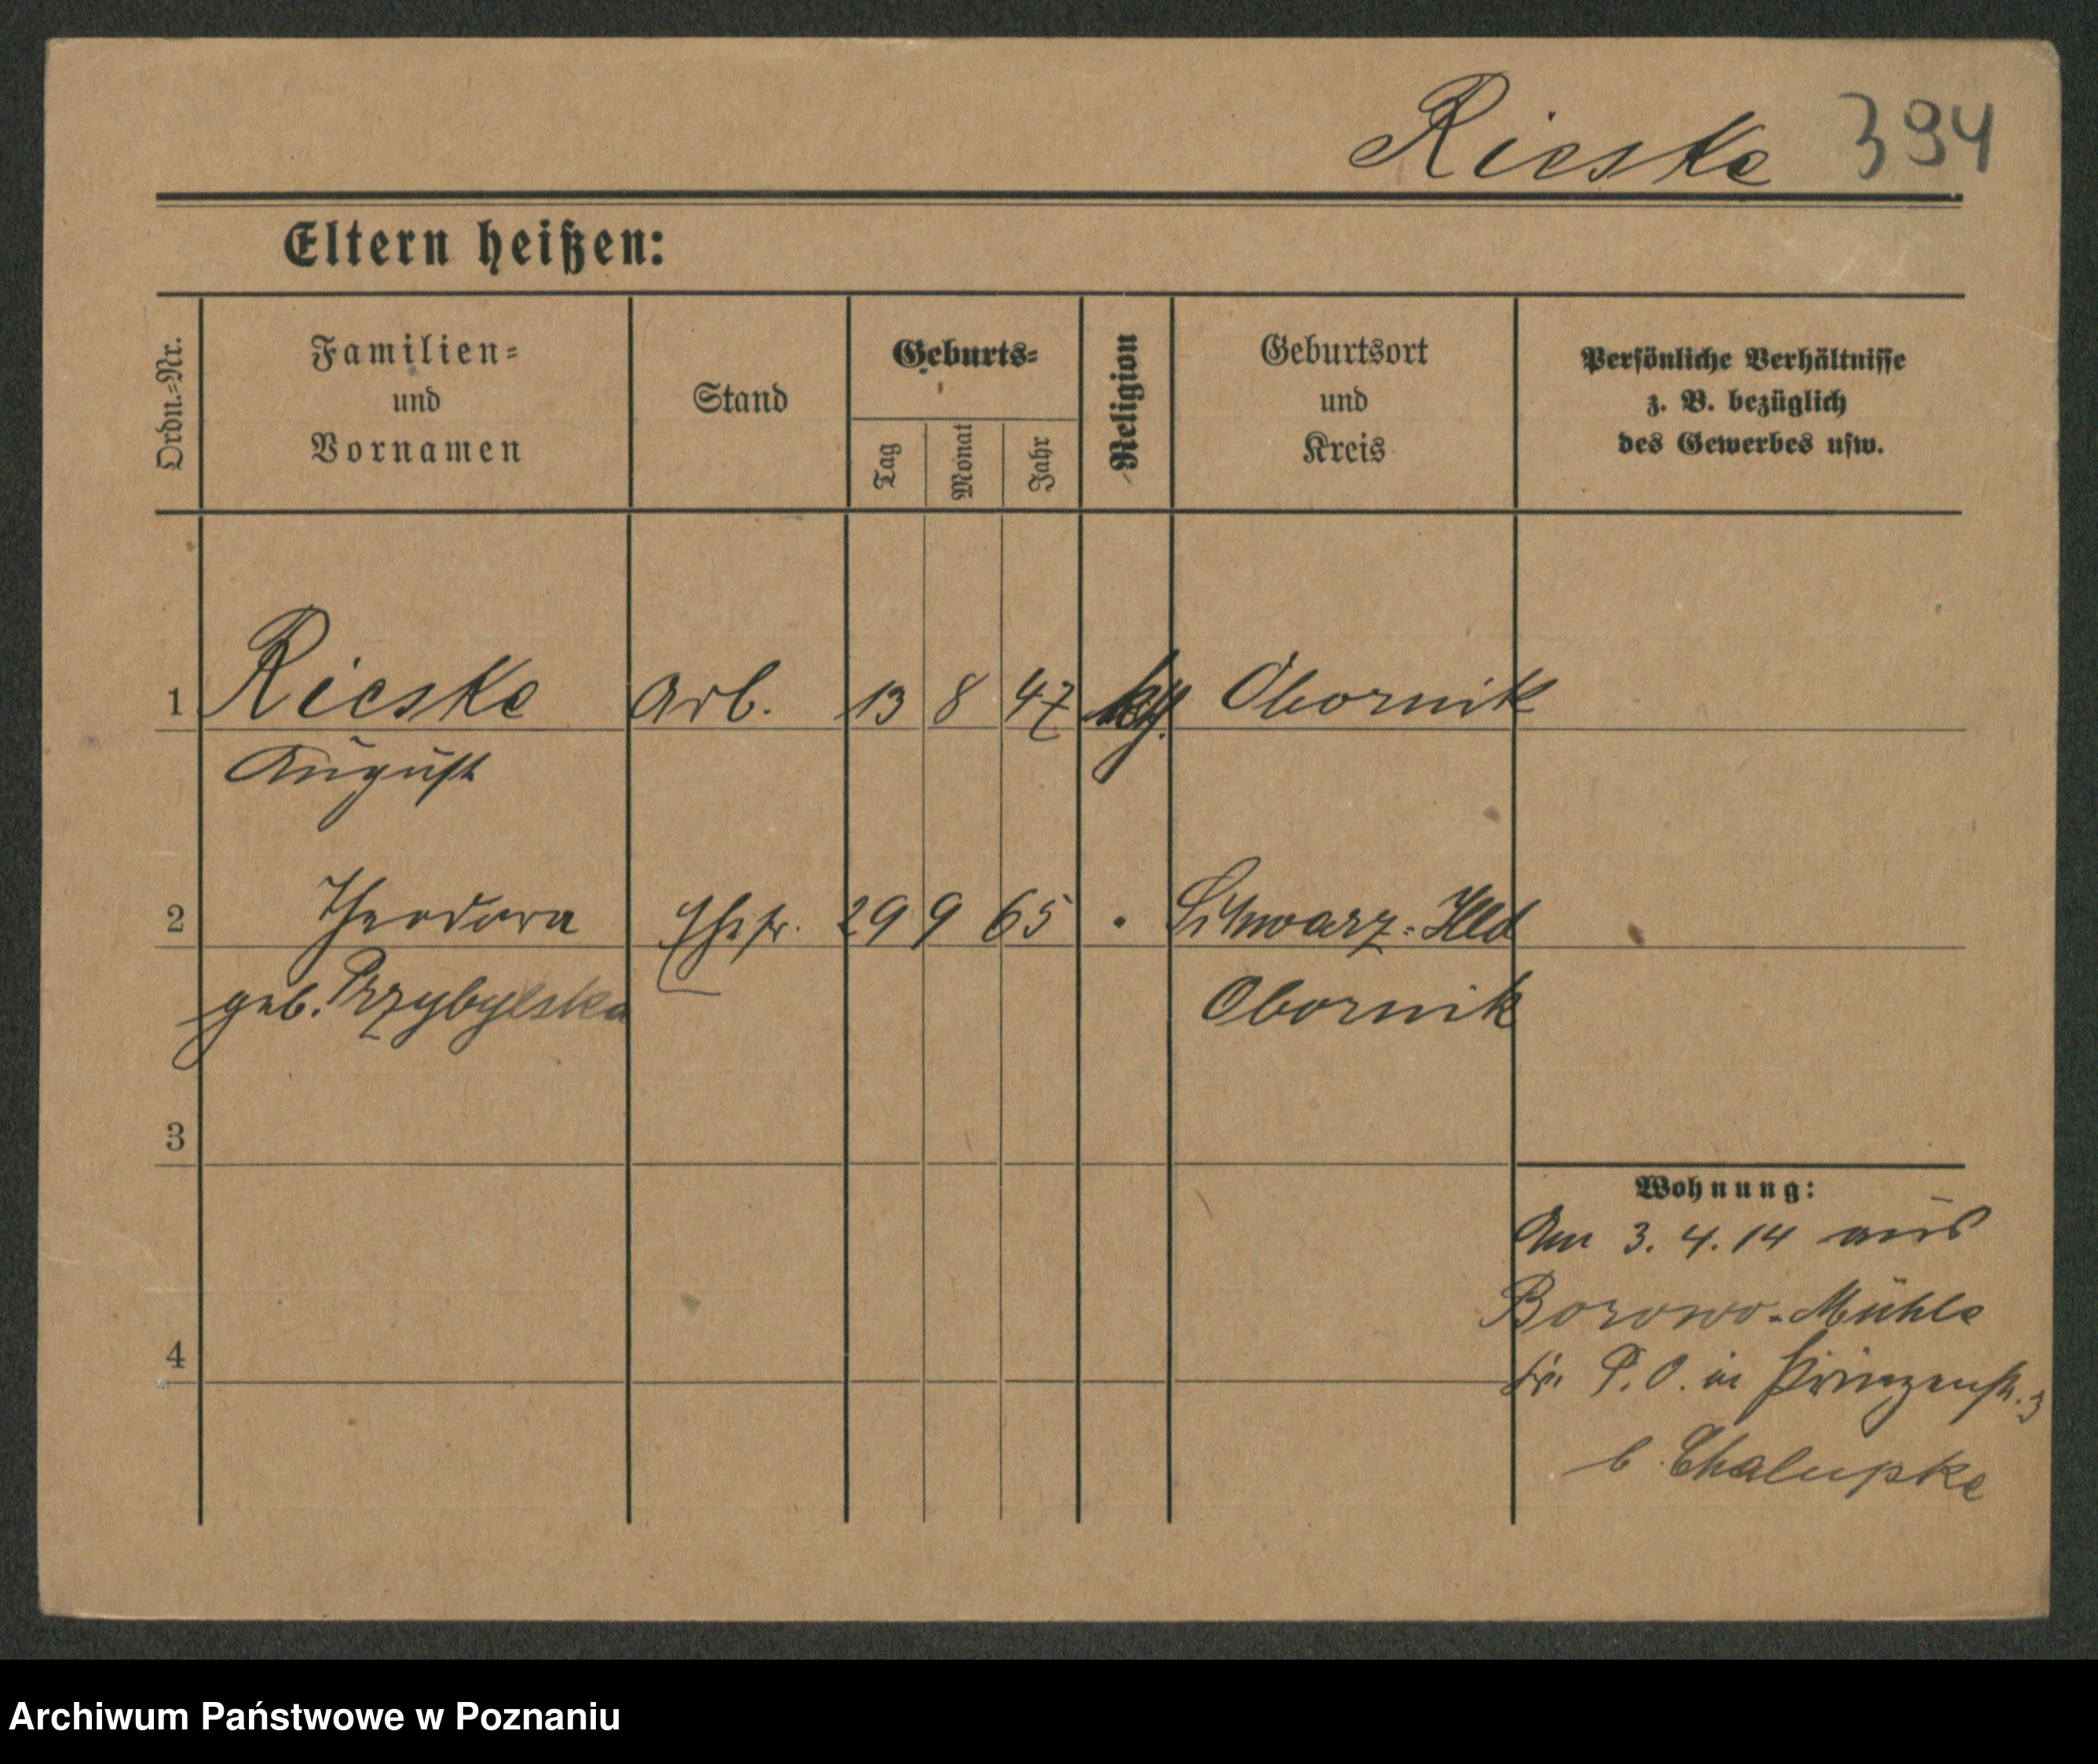 Rieske 394
Eltern heißen:
Ordn.-Nr.
Familien-
und
Vornamen
Stand
Geburts-
Tag
Monat
Jahr
Religion
Geburtsort
und
Kreis
Persönliche Verhältnisse
z. B. bezüglich
des Gewerbes usw.
1 Rieske Arb. 13 8 47 Obornik
August
2 Theodora Ehefr. 29 9 65 " Schwarz-Hld
geb. Przybylska Obornik
3
4
Wohnung:
Am 3. 4. 14 aus
Borowo-Mühle
P. O. in Prinzenstr. 3
b. Chalupke
Archiwum Państwowe w Poznaniu